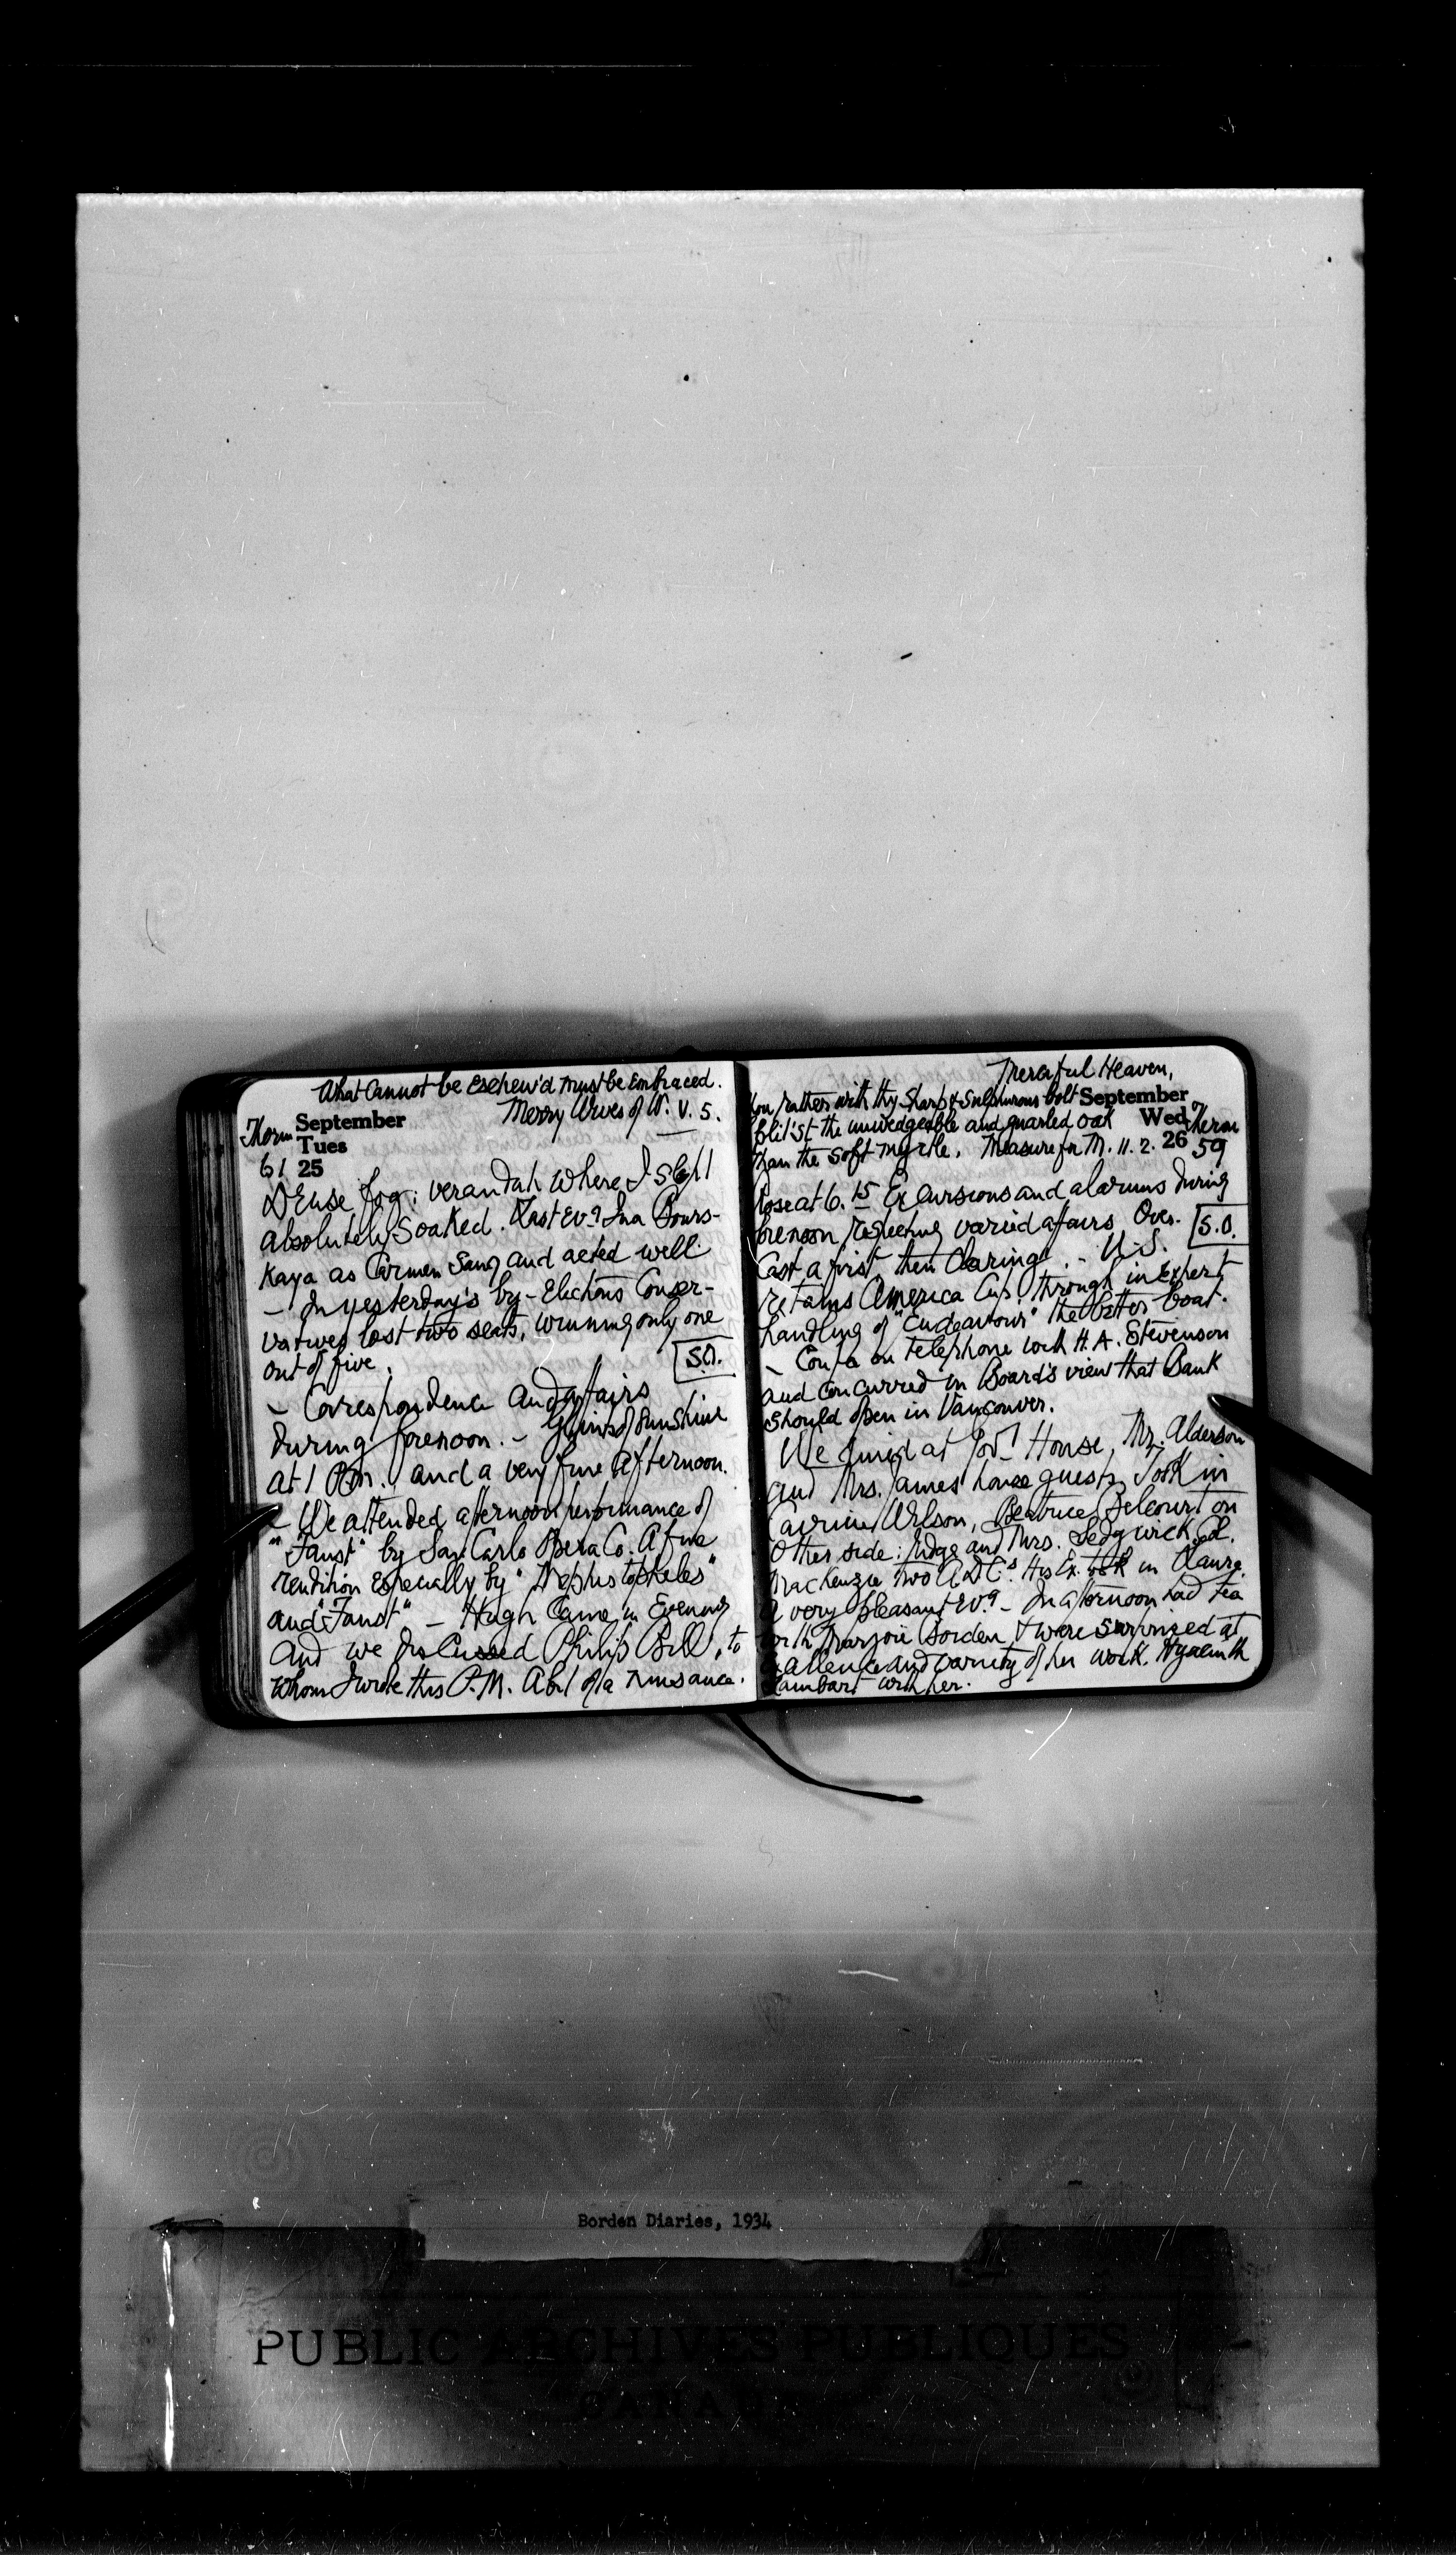 What cannot be Eschew'd must be Embraced.
Merry Wives of W. V. 5.
Therm September
Tues
61 25
Dense fog: verandah where I slept
absolutely soaked. Last Evg Ina Bours-
kaya as Carmen Sang and acted well.
– In yesterday's by-Elections Conser-
vatives lost two seats, winning only one
out of five. S.O.
– Correspondence and affairs
during forenoon. – Glints of sunshine
at 1 P.m. and a very fine afternoon.
– We attended afternoon performance of
"Faust" by San Carlo Opera Co. A fine
rendition Especially by "Mephistopheles"
and "Faust" – Hugh Came in Evening
and we discussed Philip's Bill, to
whom I wrote this P.M. A bit of a nuisance.
Merciful Heaven,
You rather with thy sharp & sulphurous bolt September
Split'st the unwedgeable and gnarled oak Wed Therm
Than the soft myrtle. Measure for M. 11. 2. 26 59
Rose at 6.15 Excursions and alarums during
forenoon respecting varied affairs Over- S.O.
Cast a first, then Clearing. – U.S.
retains America Cup through in Expert
handling of "Endeavour" the better boat.
– Confce on telephone with H. A. Stevenson
and concurred in Board's view that Bank
should open in Vancouver.
We dined at Govt House, Mr. Alderson
and Mrs. James house guests, Took in
Cairine Wilson, Beatrice Belcourt on
Other side: Judge and Mrs. Sedgwick, Col.
Mackenzie two A.D.Cs. His Ex. took in Laura.
A very pleasant Evg – In afternoon had tea
with Marjorie Borden & were surprized at
Excellence and variety of her work. Hyacinth
Lambart with her.
Borden Diaries, 1934
PUBLIC ARCHIVES PUBLIQUES
CANADA